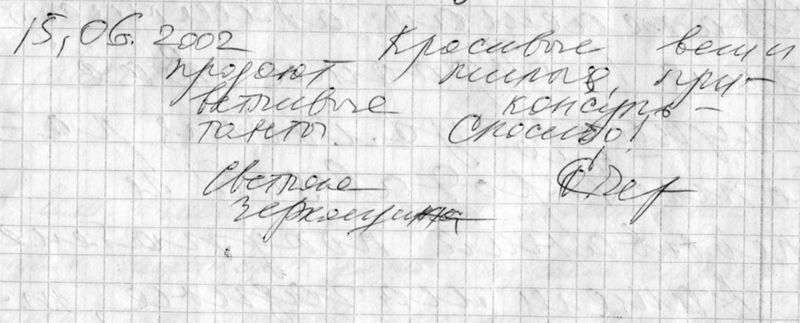 15.06.2002 Красивые вещи
продают милые, при-
ветливые консуль-
танты. Спасибо!
Светлана